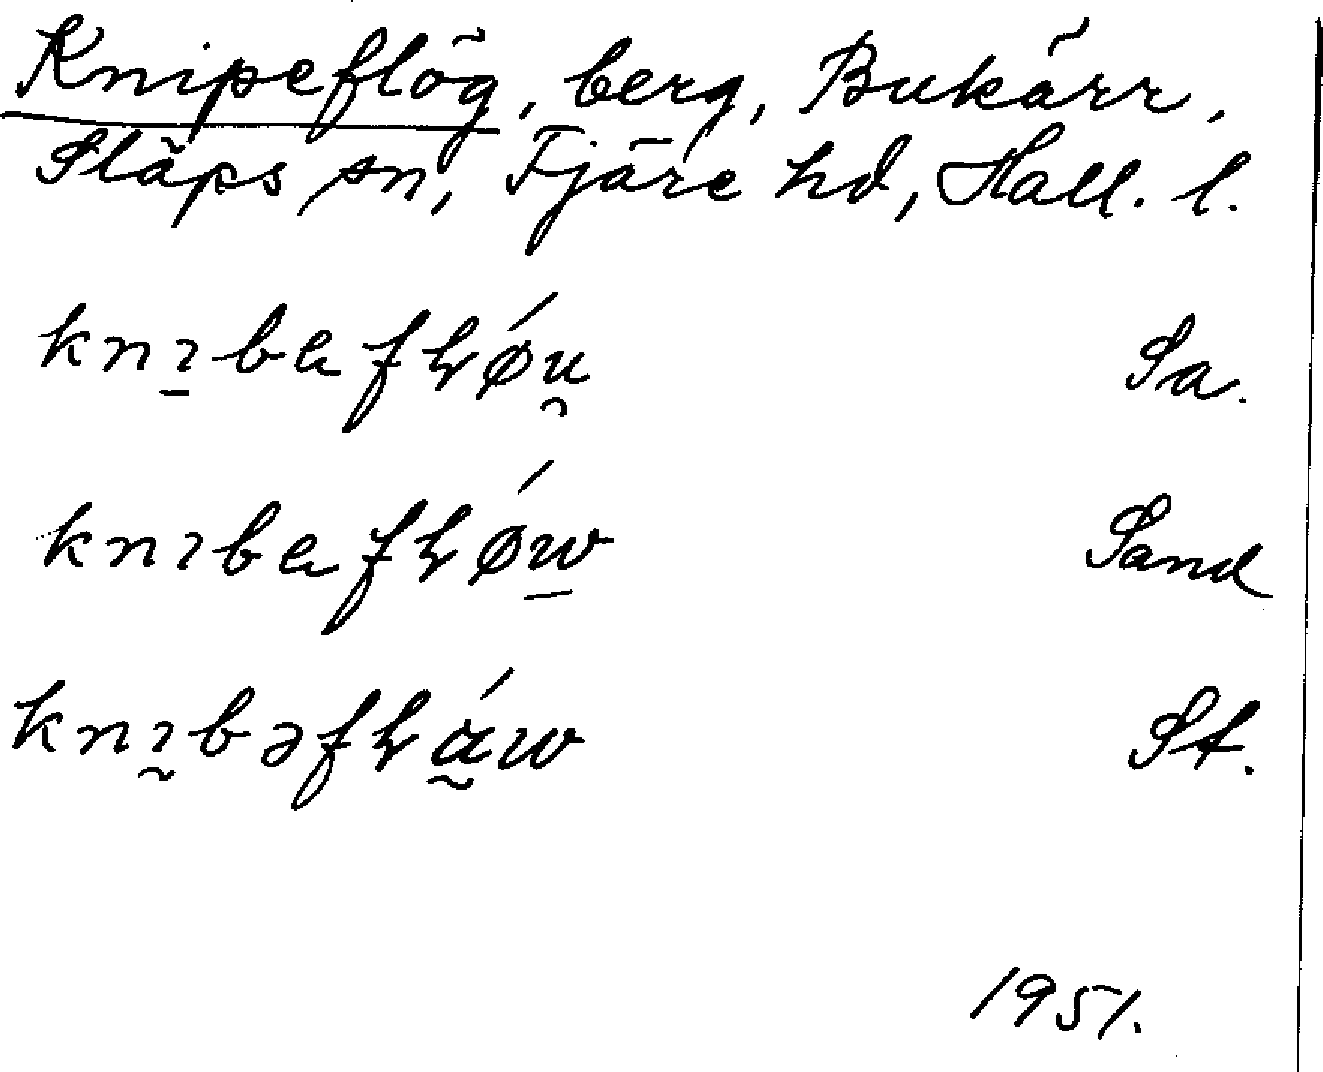 Knipeflög, berg, Bukärr,
Släps sn, Fjäre hd, Hall. l.
knɪ̠bɐfꞎǿu̯ Sa.
knɪbɐfꞎǿw̠ Sand
knɪ̰bəfꞎá̰w St.
1951.